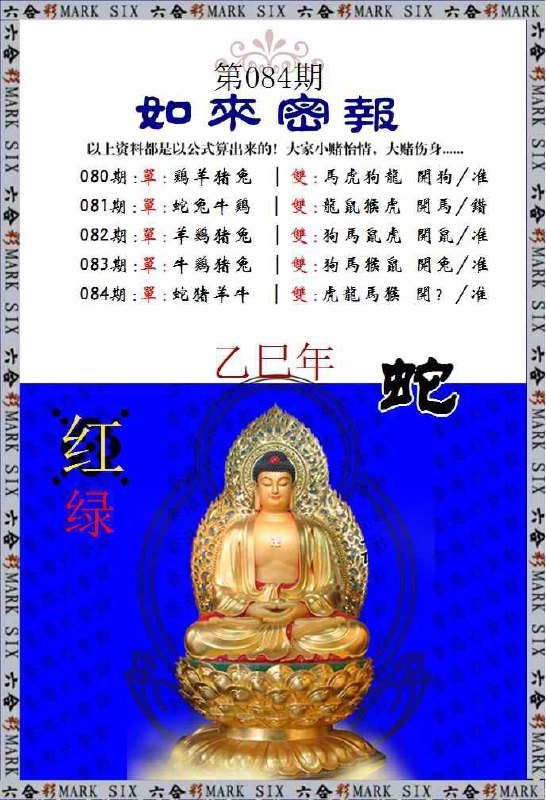 六合彩MARK SIX 六合彩MARK SIX 六合彩MARK SIX 六合彩MARK SIX
第084期
如來密報
以上资料都是以公式算出来的！大家小赌怡情，大赌伤身......
080期:單:鷄羊猪兔 | 雙:馬虎狗龍 開狗/准
081期:單:蛇兔牛鷄 | 雙:龍鼠猴虎 開馬/錯
082期:單:羊鷄猪兔 | 雙:狗馬鼠虎 開鼠/准
083期:單:牛鷄猪兔 | 雙:狗馬猴鼠 開兔/准
084期:單:蛇猪羊牛 | 雙:虎龍馬猴 開?/准
乙巳年
蛇
红
绿
六合彩MARK SIX 六合彩MARK SIX 六合彩MARK SIX 六合彩MARK SIX